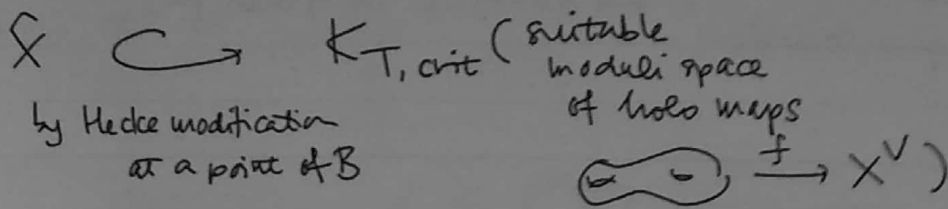 Ŝ ↪ K_{T, crit} ( suitable
moduli space
of holo maps
by Hecke modification
at a point of B
f → X^∨ )